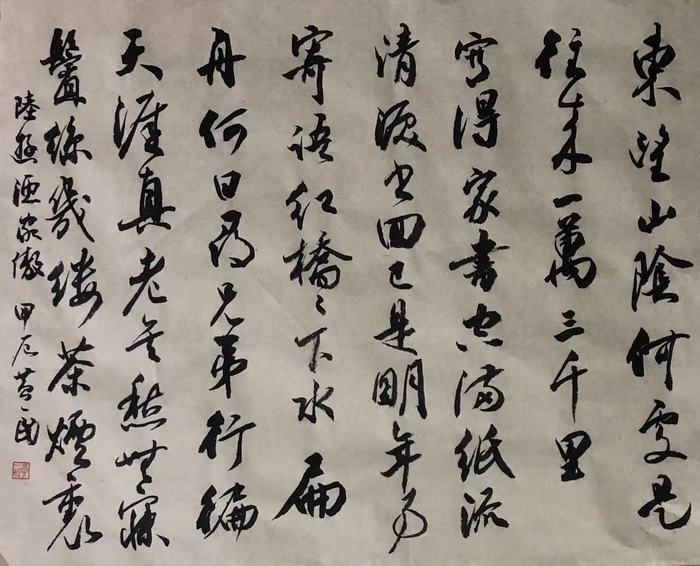 東望山陰何處是
往来一萬三千里
寫得家書空滿紙流
清淚书回已是明年事
寄語红橋〻下水扁
舟何日尋兄弟行徧
天涯真老矣愁無寐
鬢絲幾縷茶煙裏
陸游漁家傲 甲辰黄民